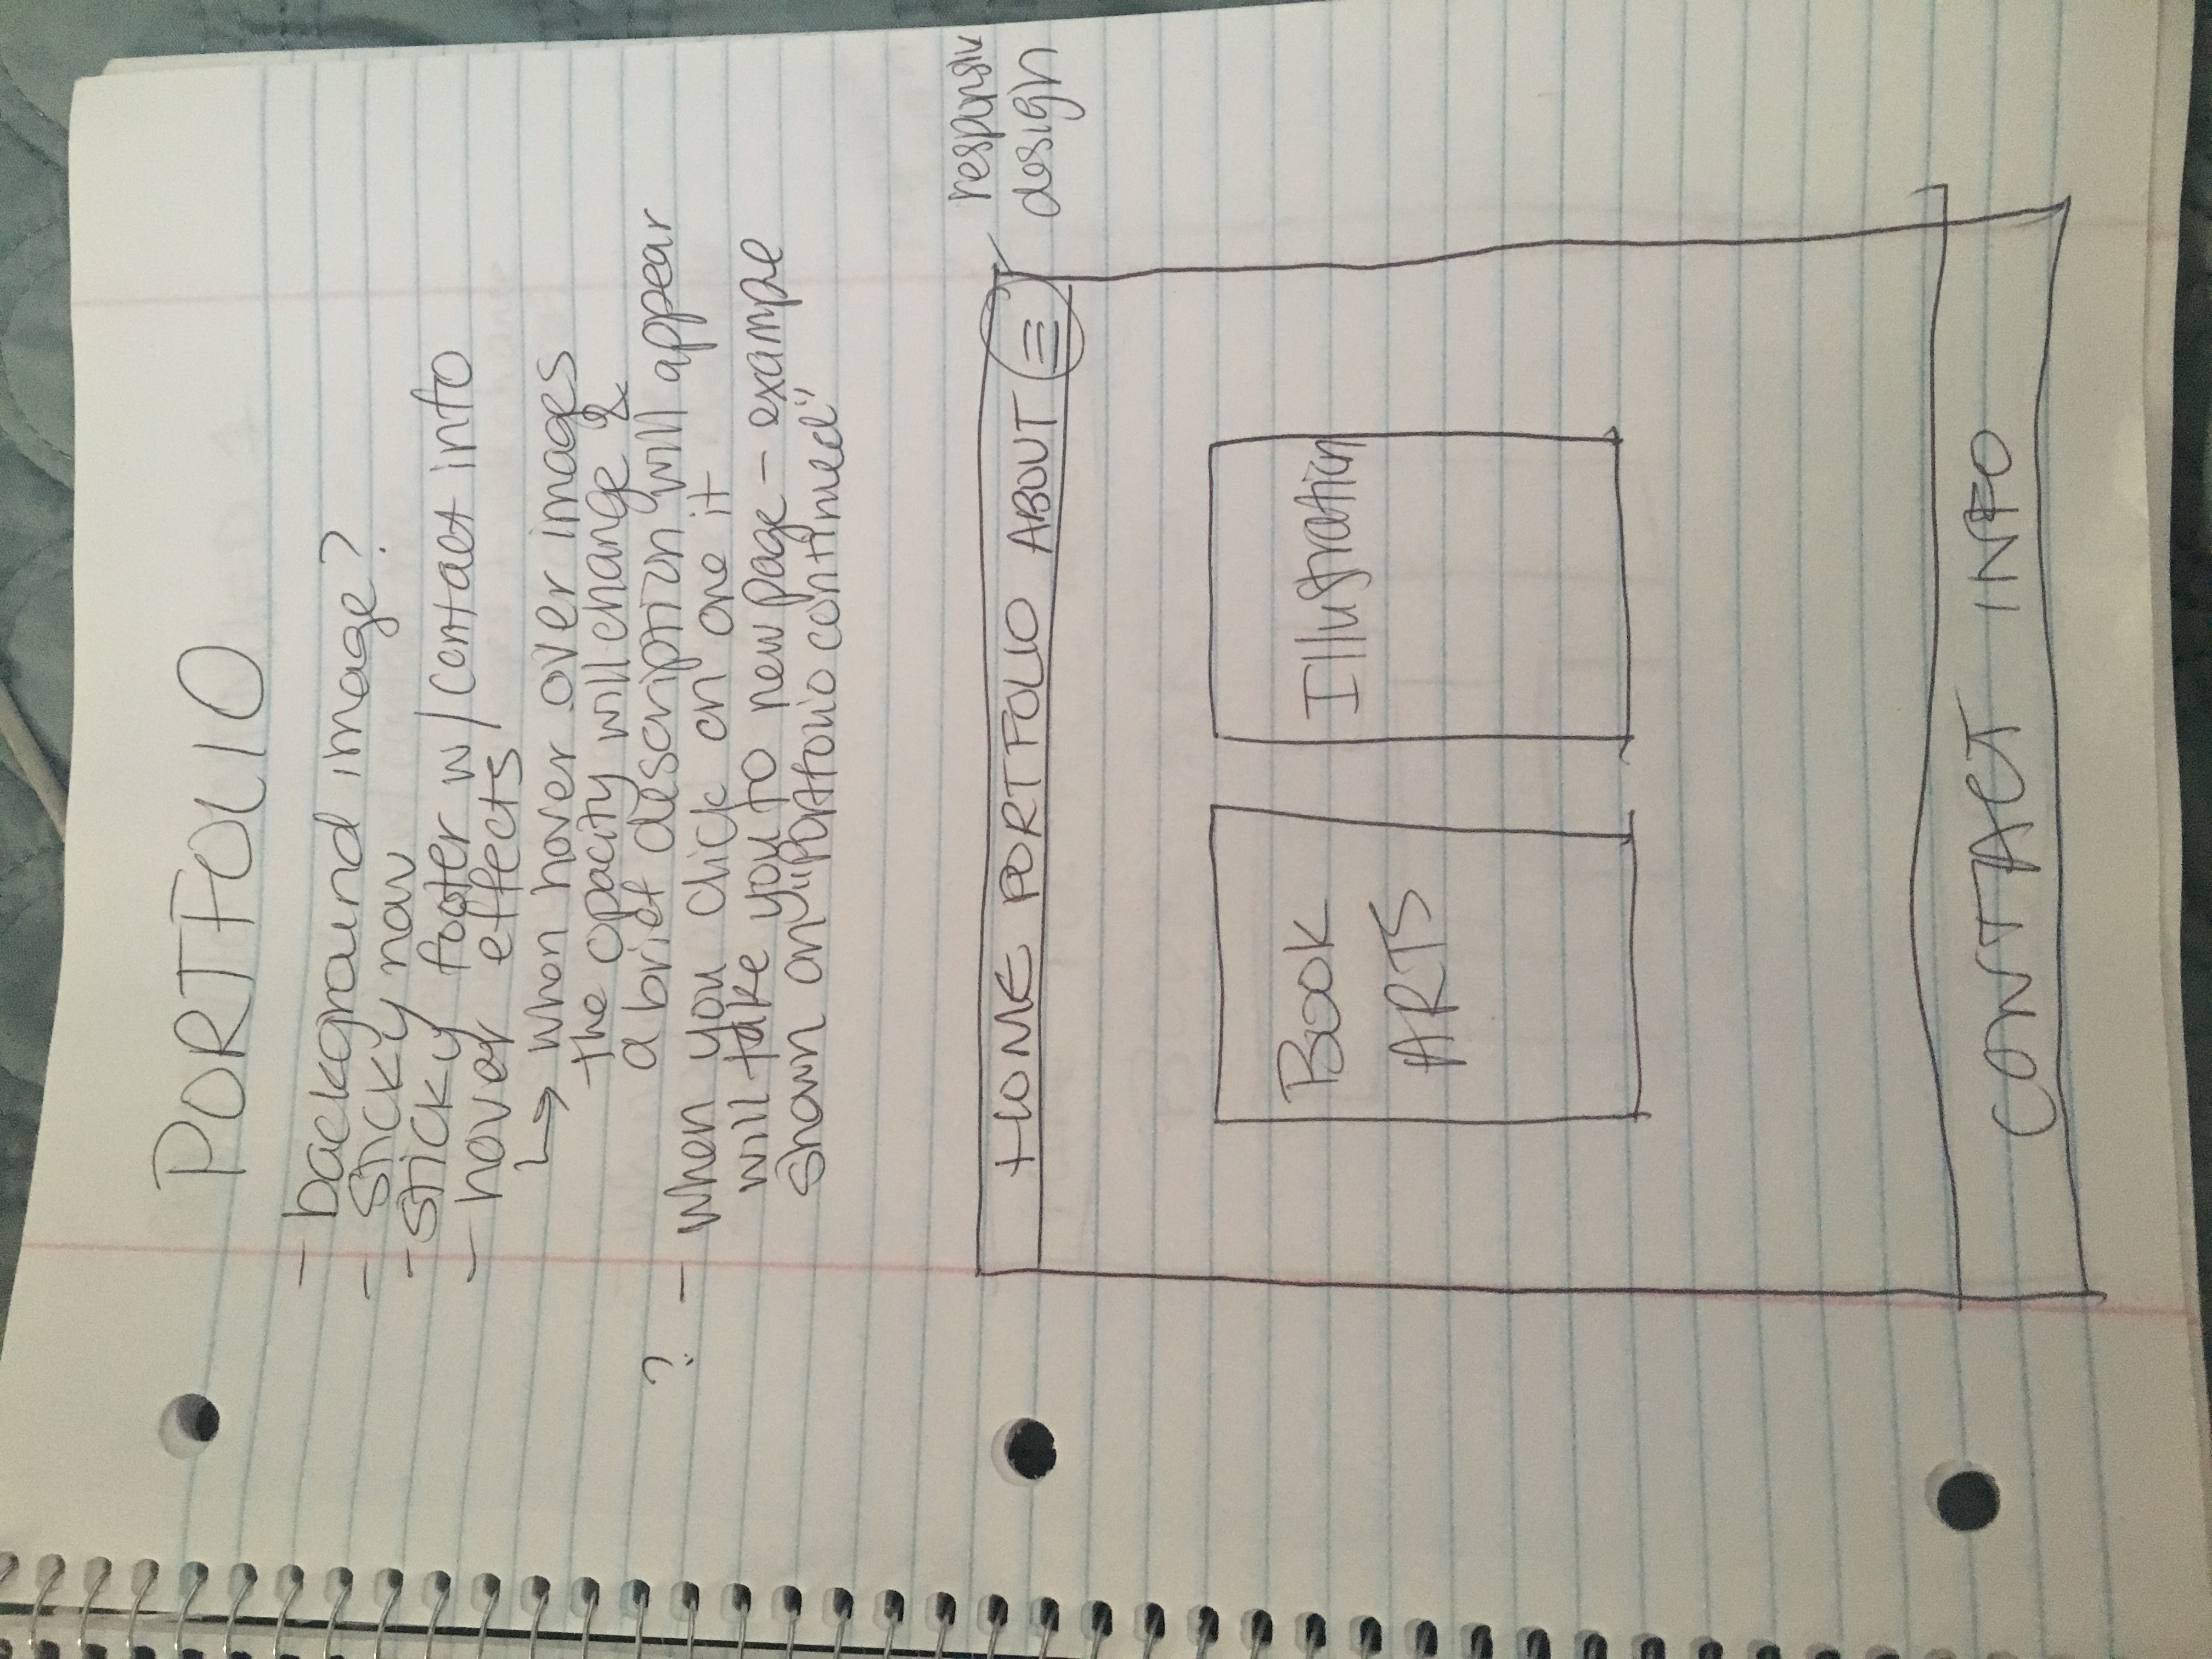 PORTFOLIO
- background image?
- sticky nav
- sticky footer w/contact info
- hover effects
↳ when hover over images
the opacity will change &
a brief description will appear
? - when you click on one it
will take you to new page - example
shown on "Portfolio continued"
responsiv
design
HOME PORTFOLIO ABOUT
BOOK
ARTS
Illustration
CONTACT INFO